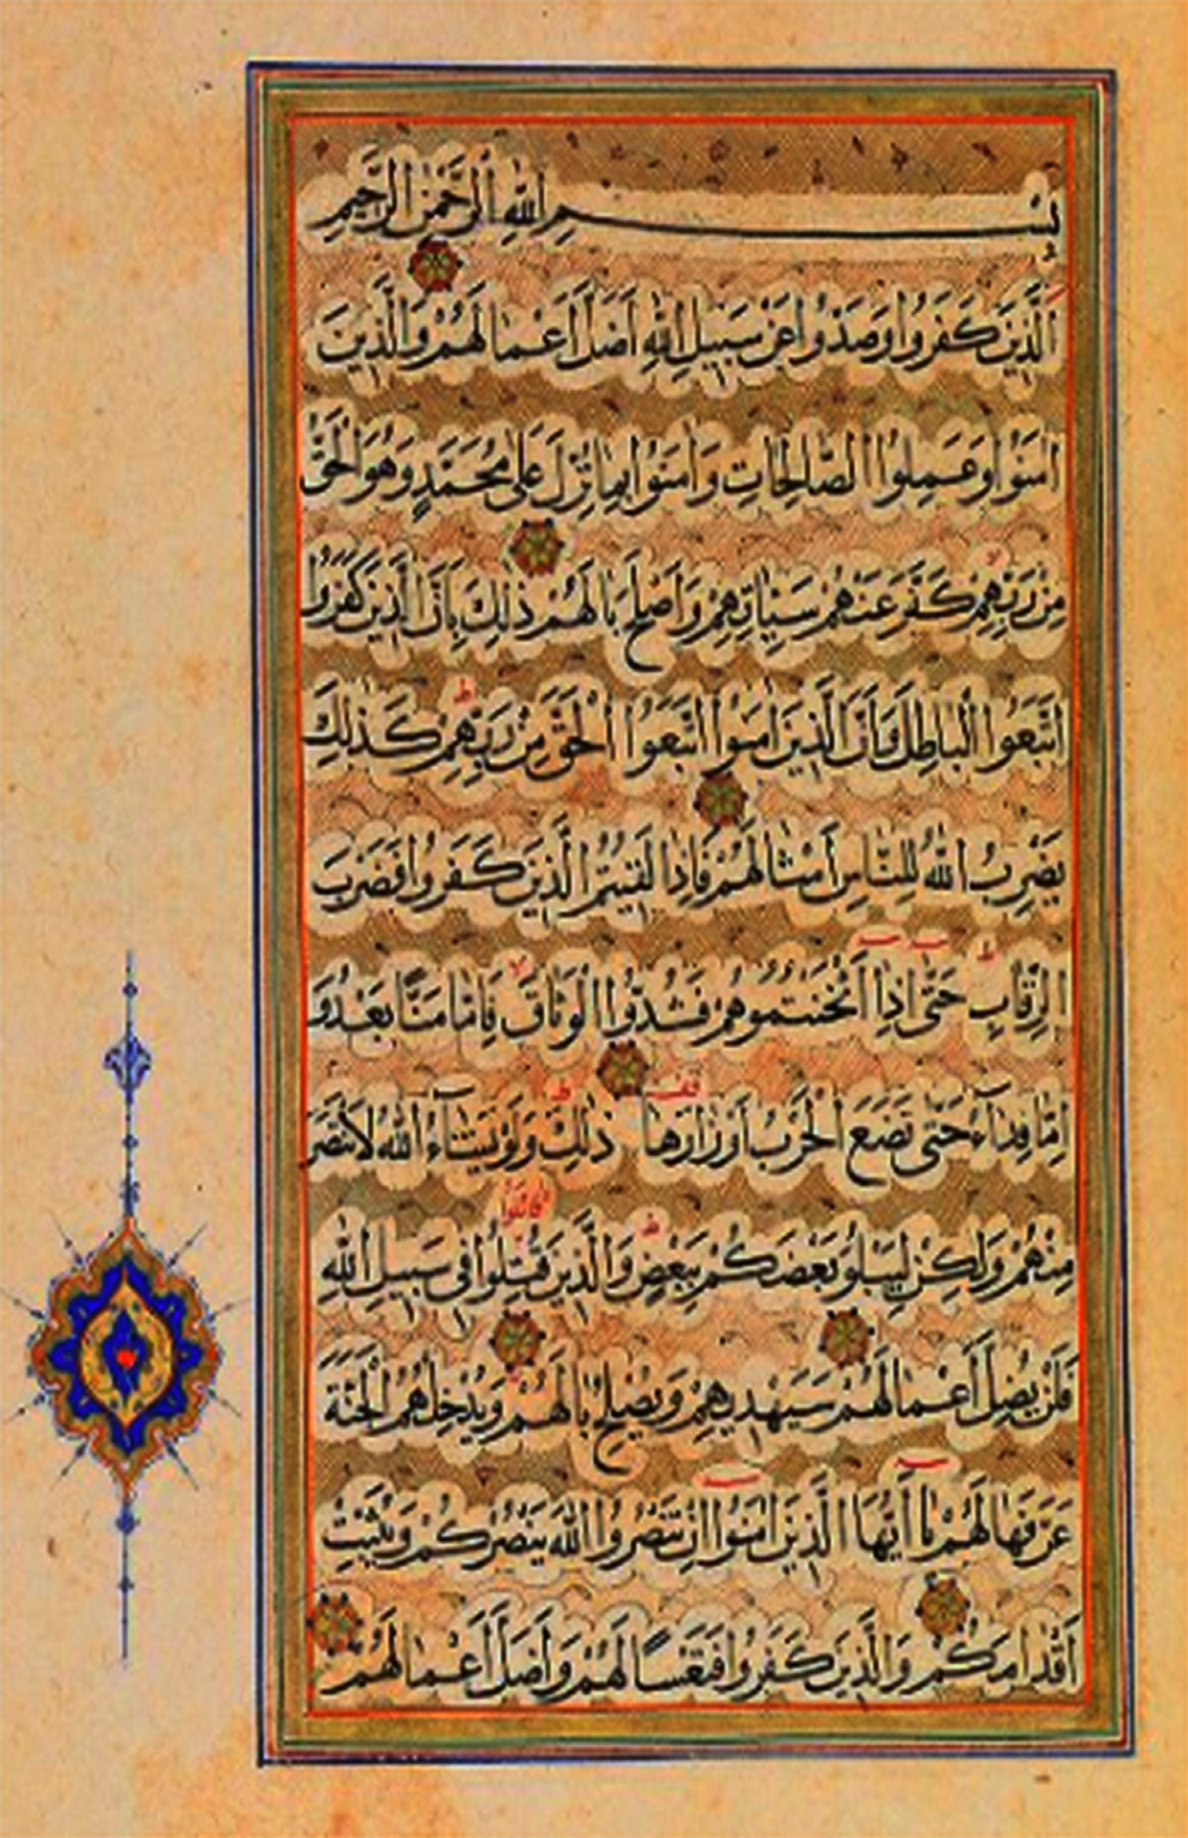 بِسْمِ اللّٰهِ الرَّحْمٰنِ الرَّحِيمِ
اَلَّذِينَ كَفَرُوا وَصَدُّوا عَنْ سَبِيلِ اللّٰهِ اَضَلَّ اَعْمَالَهُمْ وَالَّذِينَ
اٰمَنُوا وَعَمِلُوا الصَّالِحَاتِ وَاٰمَنُوا بِمَا نُزِّلَ عَلٰى مُحَمَّدٍ وَهُوَ الْحَقُّ
مِنْ رَبِّهِمْ كَفَّرَ عَنْهُمْ سَيِّئَاتِهِمْ وَاَصْلَحَ بَالَهُمْ ذٰلِكَ بِاَنَّ الَّذِينَ كَفَرُوا
اتَّبَعُوا الْبَاطِلَ وَاَنَّ الَّذِينَ اٰمَنُوا اتَّبَعُوا الْحَقَّ مِنْ رَبِّهِمْ كَذٰلِكَ
يَضْرِبُ اللّٰهُ لِلنَّاسِ اَمْثَالَهُمْ فَاِذَا لَقِيتُمُ الَّذِينَ كَفَرُوا فَضَرْبَ
الرِّقَابِ حَتّٰى اِذَا اَثْخَنْتُمُوهُمْ فَشُدُّوا الْوَثَاقَ فَاِمَّا مَنًّا بَعْدُ وَ
اِمَّا فِدَاءً حَتّٰى تَضَعَ الْحَرْبُ اَوْزَارَهَا ذٰلِكَ وَلَوْ يَشَاءُ اللّٰهُ لَانْتَصَرَ
مِنْهُمْ وَلٰكِنْ لِيَبْلُوَ بَعْضَكُمْ بِبَعْضٍ وَالَّذِينَ قُتِلُوا فِي سَبِيلِ اللّٰهِ
فَلَنْ يُضِلَّ اَعْمَالَهُمْ سَيَهْدِيهِمْ وَيُصْلِحُ بَالَهُمْ وَيُدْخِلُهُمُ الْجَنَّةَ
عَرَّفَهَا لَهُمْ يَا اَيُّهَا الَّذِينَ اٰمَنُوا اِنْ تَنْصُرُوا اللّٰهَ يَنْصُرْكُمْ وَيُثَبِّتْ
اَقْدَامَكُمْ وَالَّذِينَ كَفَرُوا فَتَعْسًا لَهُمْ وَاَضَلَّ اَعْمَالَهُمْ